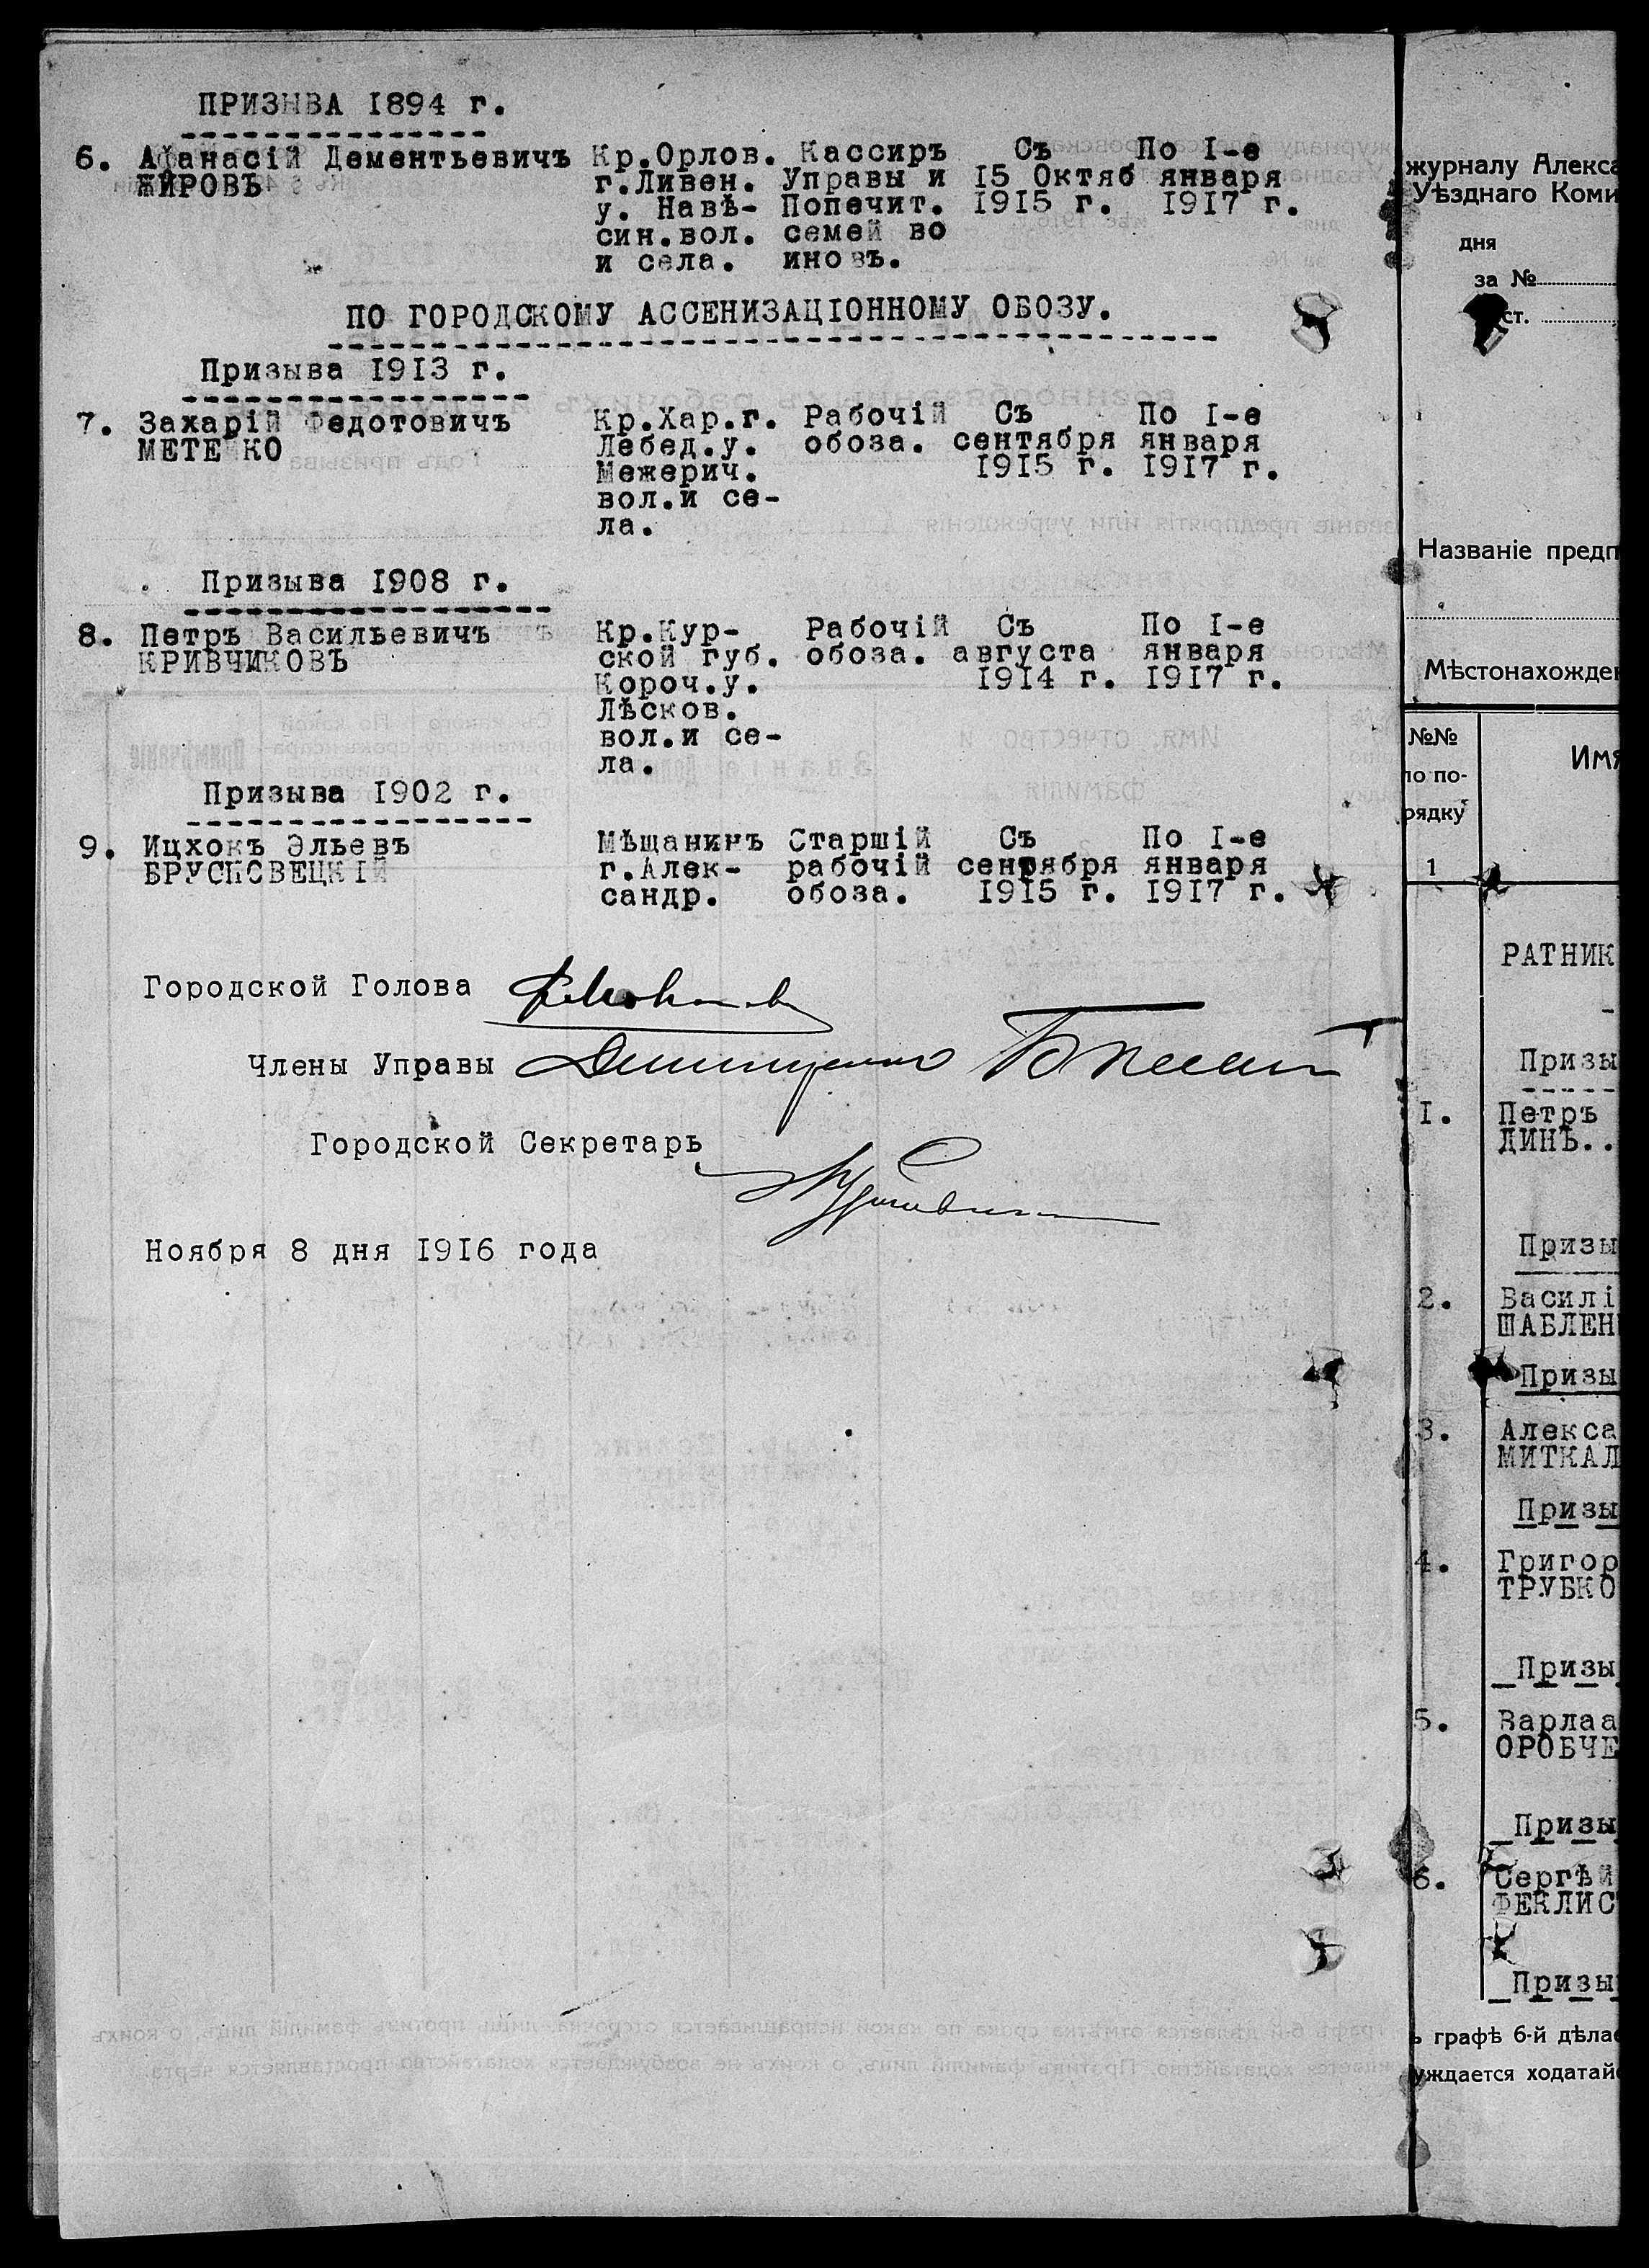 ПРИЗЫВА 1894 г.
6. Афанасій Дементьевичъ Кр.Орлов. Кассиръ Съ По I-е
ЖИРОВЪ г.Ливен. Управы и 15 Октяб января
у. Навѣ- Попечит. 1915 г. 1917 г.
син.вол. семей во
и села. иновъ.
ПО ГОРОДСКОМУ АССЕНИЗАЦІОННОМУ ОБОЗУ.
Призыва 1913 г.
7. Захарій Федотовичъ Кр.Хар.г. Рабочій Съ По I-е
МЕТЕ КО Лебед.у. обоза. сентября января
Межерич. 1915 г. 1917 г.
вол.и се-
ла.
Призыва 1908 г.
8. Петръ Васильевичъ Кр.Кур- Рабочій Съ По I-е
КРИВЧИКОВЪ ской губ. обоза. августа января
Короч.у. 1914 г. 1917 г.
Лѣсков.
вол.и се-
ла.
Призыва 1902 г.
9. Ицхокъ Эльевъ Мѣщанинъ Старшій Съ По I-е
БРУСИСВЕЦКІЙ г.Алек- рабочій сентября января
сандр. обоза. 1915 г. 1917 г.
Городской Голова
Члены Управы
Городской Секретарь
Ноября 8 дня 1916 года
журналу Алекса
Уѣзднаго Коми
дня
за №
ст.
Названіе предп
Мѣстонахожден
№№
по по-
рядку
Имя
1
РАТНИК
Призы
1. Петръ
ДИНЪ..
Призы
2. Василі
ШАБЛЕН
Призы
3. Алекса
МИТКАЛ
Призы
4. Григор
ТРУБКО
Призы
5. Варлаа
ОРОБЧЕ
Призы
6. Сергѣй
ФЕКЛИС
Призы
ъ графѣ 6-й дѣлае
уждается ходатай